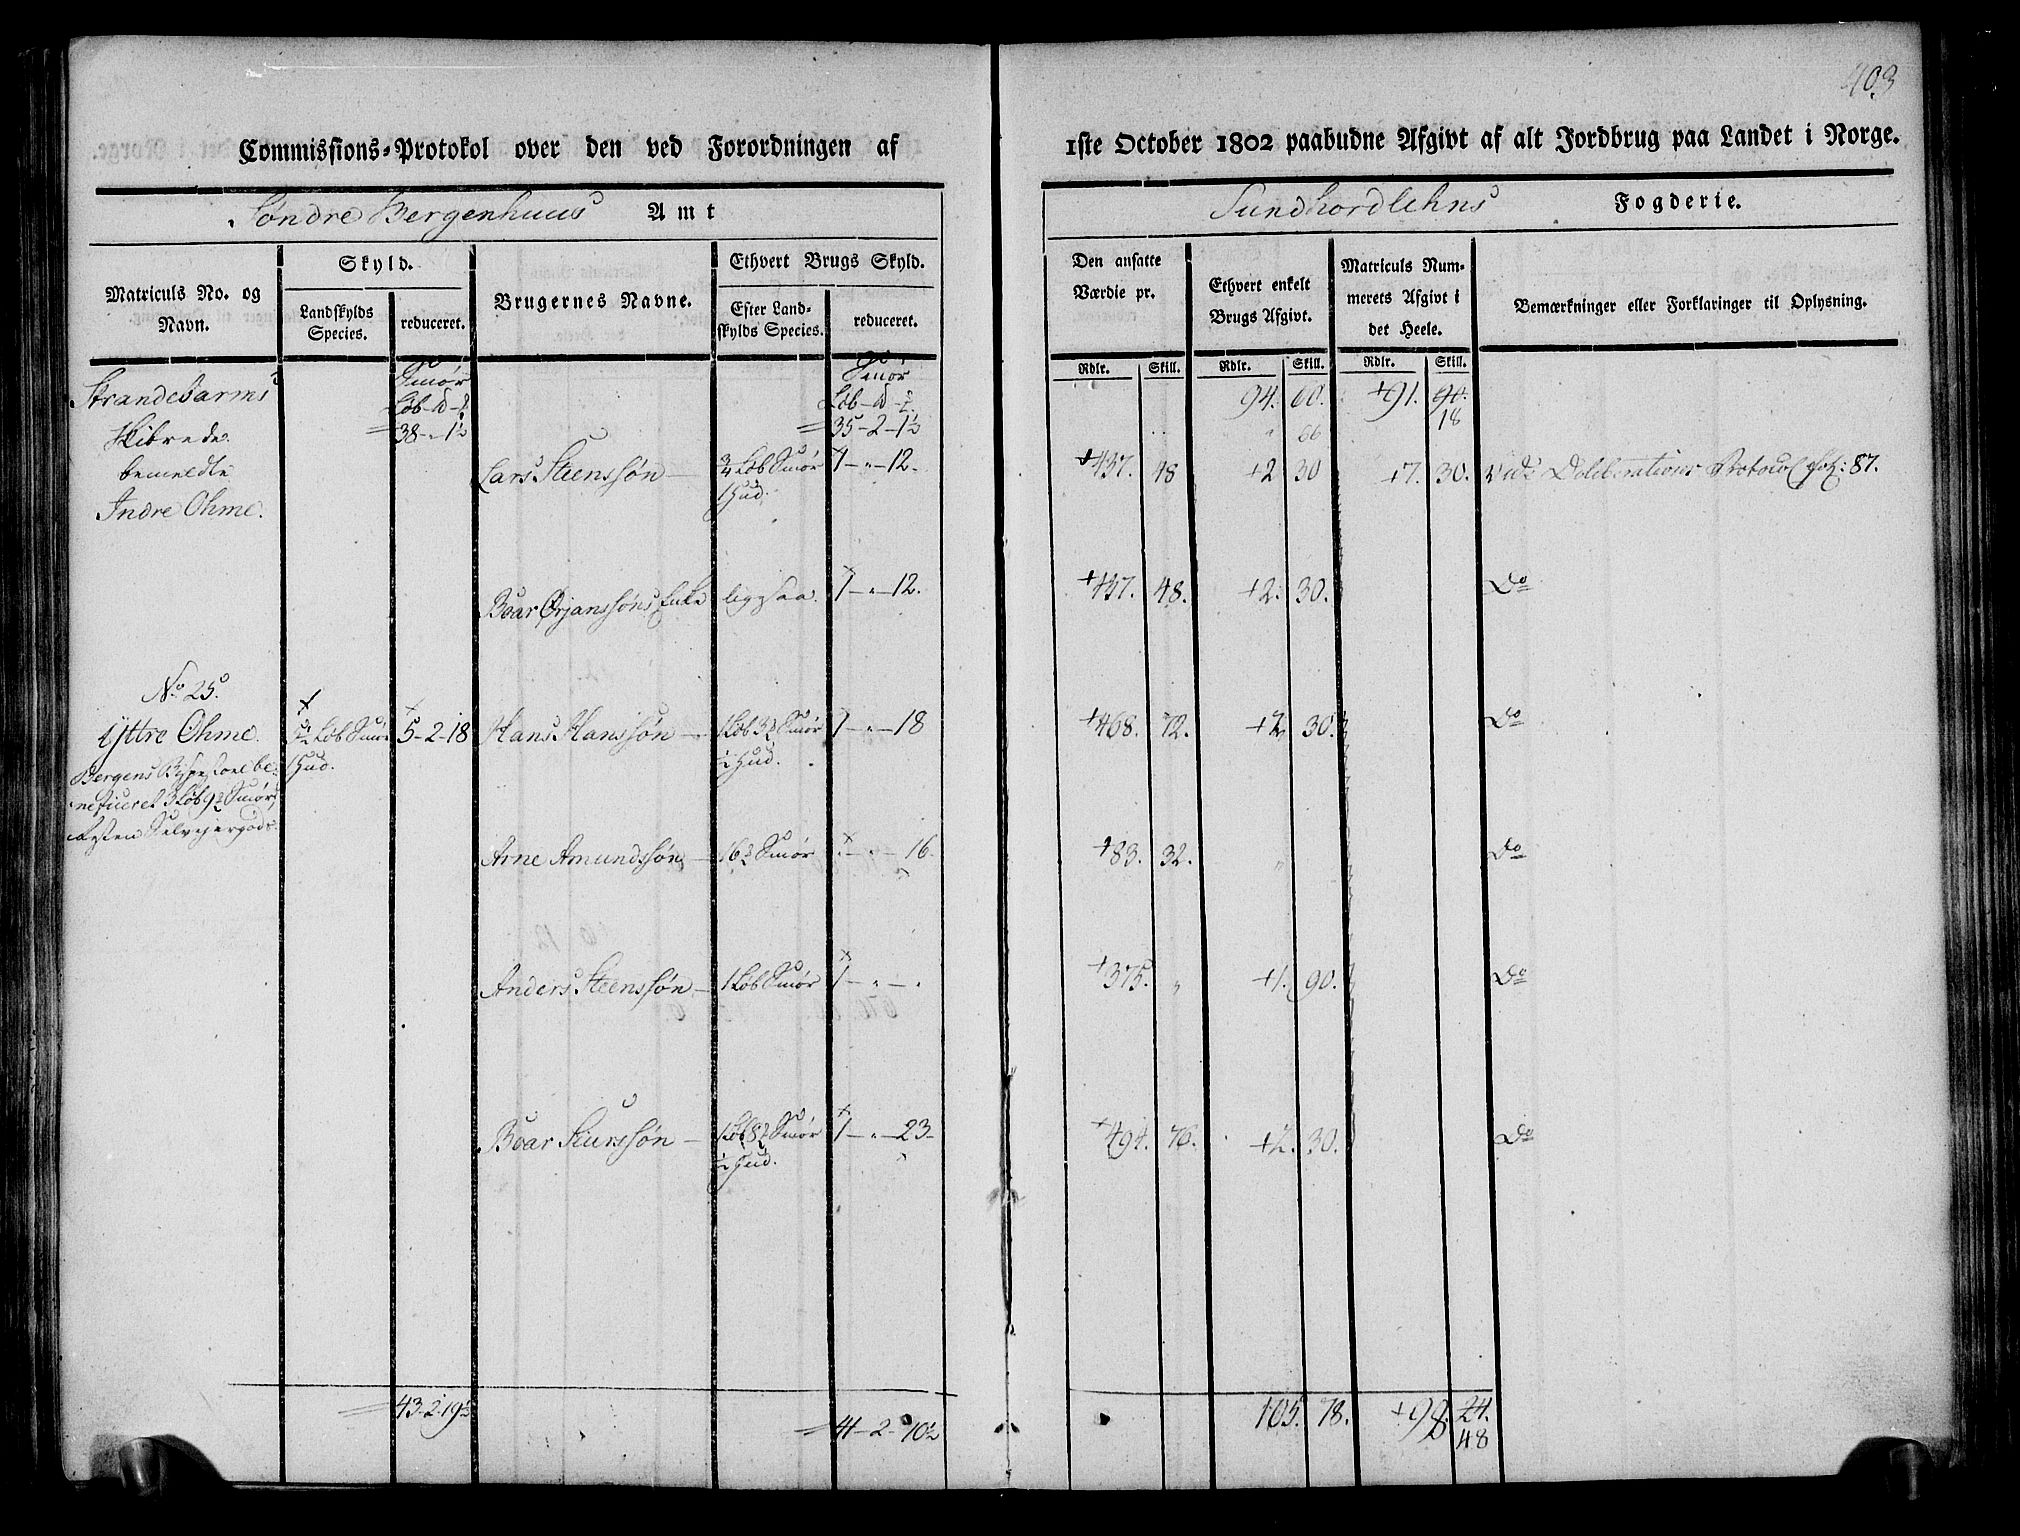 403
Commissions-Protokol over den ved Forordningen af 1ste October 1802 paabudne Afgivt af alt Jordbrug paa Landet i Norge.
Søndre Bergenhuus Amt
Sundhordlehns Fogderie.
Matriculs No. og Navn.
Skyld.
Landskylds Species.
reduceret.
Brugernes Navne.
Ethvert Brugs Skyld.
Efter Landskylds Species.
reduceret.
Den ansatte Værdie pr.
Ethvert enkelt Brugs Afgivt.
Matriculs Nummerets Afgivt i det Heele.
Bemærkninger eller Forklaringer til Oplysning.
Rdlr. Skill. Rdlr. Skill. Rdlr. Skill.
Strandebarms Smør Smør
Løb - Løb - 94. 60. +91. 90.
18
Skibrede. 38-"-1½ 35-2-1½ " 66
bemeldte Lars Steenssøn - ¾ Løb Smør 1-"-12. +437. 48 +2 30 +7. 30. vide Deliberations Protocol fol: 87.
1 Hud.
Indre Ohme.
Boar Ørjanssøns Enke ligesaa. 1-"-12. +437. 48. +2. 30. Do
No 25
Yttre Ohme. Løb Smør 5-2-18 Hans Hanssøn - 1 Løb Smør 1-"-18 +468. 72. +2 30. Do
Bergens Bispestoel be- 1 Hud. ½ Hud.
neficeret 3 Løb Smør,
Resten Selvejergods.
Arne Amundssøn - 16 Smør "-"-16. +83. 32. " Do
Anders Steenssøn - 1 Løb Smør 1-"-. +375. " +1. 90. Do
Boar Siurssøn - 1 Løb Smør 1-"-23- +494. 76. +2. 30. Do
½ Hud.
43-2-19½ 41-2-10½ 105. 78. +98. 24.
48